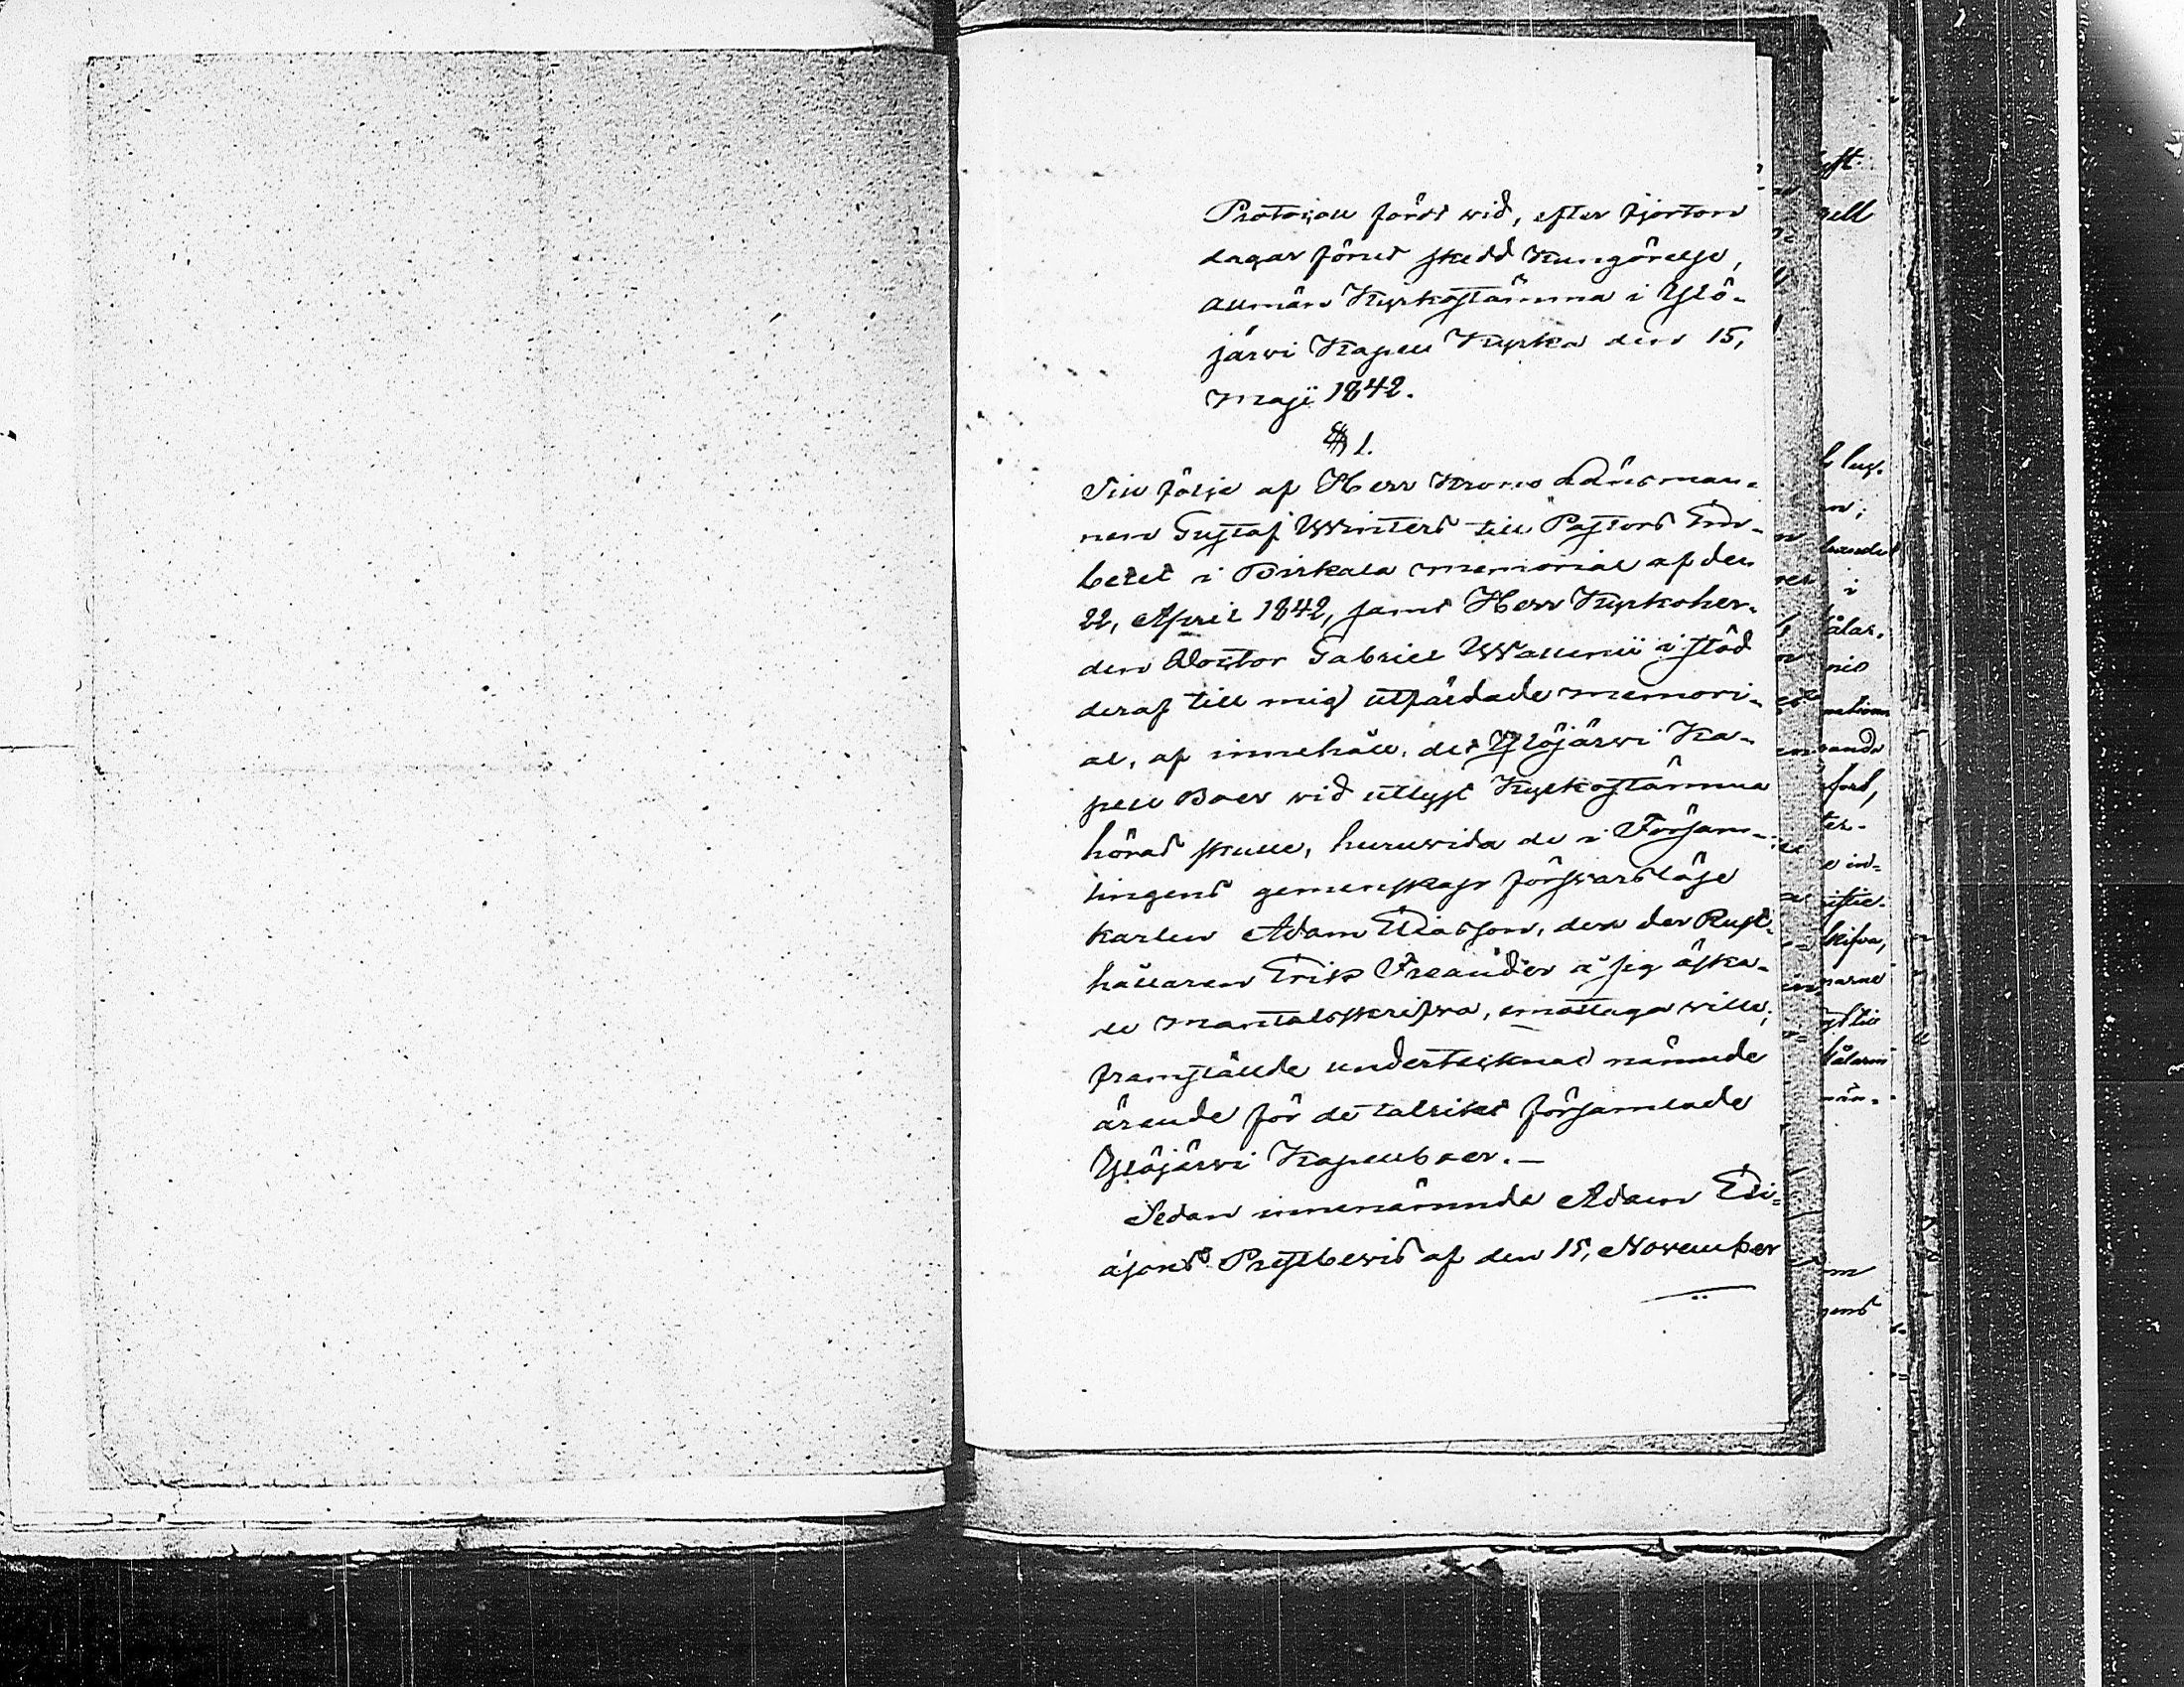 Protocoll fördt wid, efter fjorton
dagar förut skedd Kungörelse,
allmän Kyrkostämma i Ylö-
järwi Kapell Kyrka den 15,
Maji 1842.
§ 1.
Till följe af Herr Krono Länsman-
nen Gustaf Winters till Pastors Em-
betet i Birkala memorial af den
22, April 1842, samt Herr Kyrkoher-
den Doctor Gabriel Wallenii i stöd
deraf till mig utfärdade memori-
al, af innehåll, det Ylöjärwi Ka-
pell Boer wid utlyst Kyrkostämma
höras skulle, huruwida de i Försam-
lingens gemenskap förswarslöse
karlen Adam Eliasson, den der Rust-
hållaren Erik Freander å sig äska-
de mantalsskrifva, emottaga wille;
framställde undertecknad nämnde
ärende för de talrikt församlade
Ylöjärwi Kapellboer.—
Sedan innenämnde Adam Eli-
asons Prestbewis af den 15, November